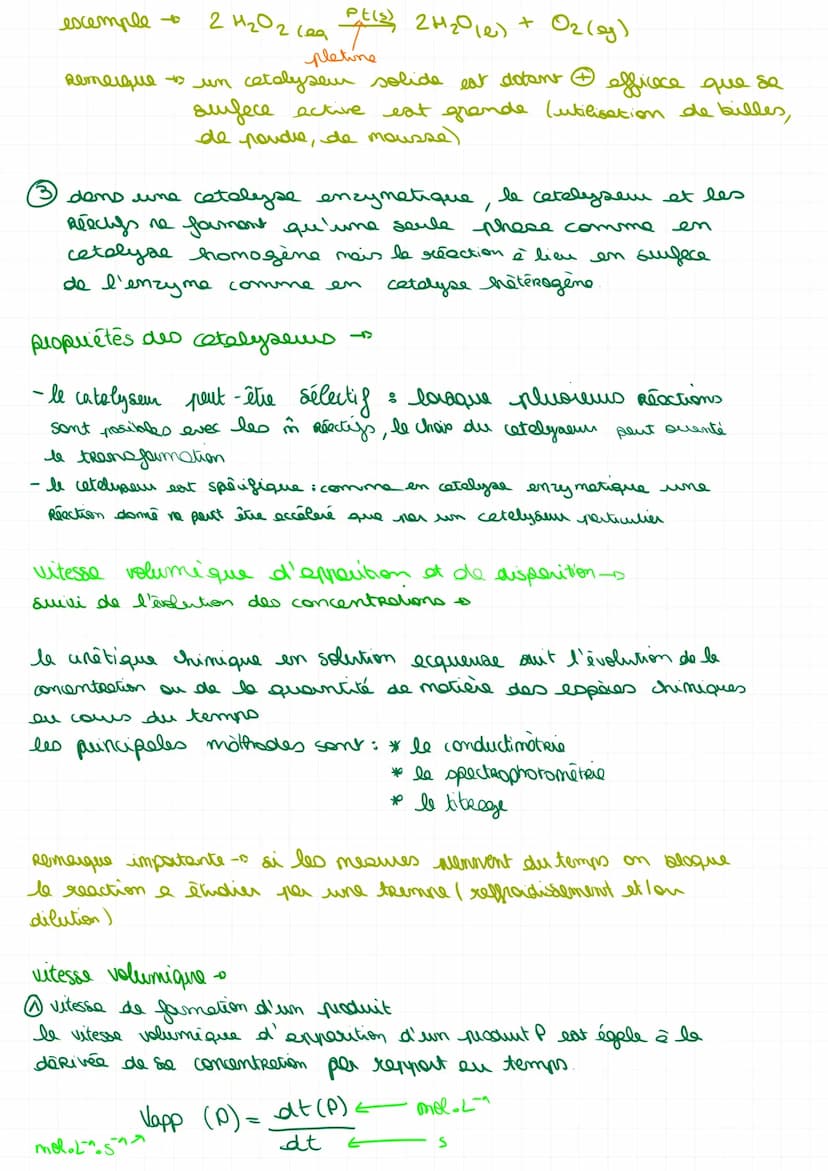 exemple → 2 H2O2 (aq) Pt(s) 2H2O(l) + O2(g)
platine
Remarque → un catalyseur solide est dotant ⊕ efficace que sa
surface active est grande (utilisation de billes,
de poudre, de mousse)
③ dans une catalyse enzymatique, le catalyseur et les
Réactifs ne forment qu'une seule phase comme en
catalyse homogène mais la réaction à lieu en surface
de l'enzyme comme en catalyse hétérogène.
propriétés des catalyseurs →
- le catalyseur peut-être sélectif : lorsque plusieurs Réactions
sont possibles avec les m̂ Réactifs, le choix du catalyseur peut orienté
la transformation
- le catalyseur est spécifique : comme en catalyse enzymatique une
Réaction donné ne peut être accéléré que par un catalyseur particulier
vitesse volumique d'apparition et de disparition →
suivi de l'évolution des concentrations →
la cinétique chimique en solution acqueuse suit l'évolution de la
concentration ou de la quantité de matière des espèces chimiques
au cours du temps
les principales méthodes sont : * la conductimétrie
* la spectrophotométrie
* le titrage
Remarque importante → si les mesures prennent du temps on bloque
la reaction a étudier par une trempe (reffroidissement et/ou
dilution)
vitesse volumique →
① vitesse de formation d'un produit
la vitesse volumique d'apparition d'un produit P est égale à la
dérivée de sa concentration par rapport au temps.
Vapp (P) = dt(P) ← mol.L⁻¹
mol.L⁻¹.s⁻¹ → dt ← s